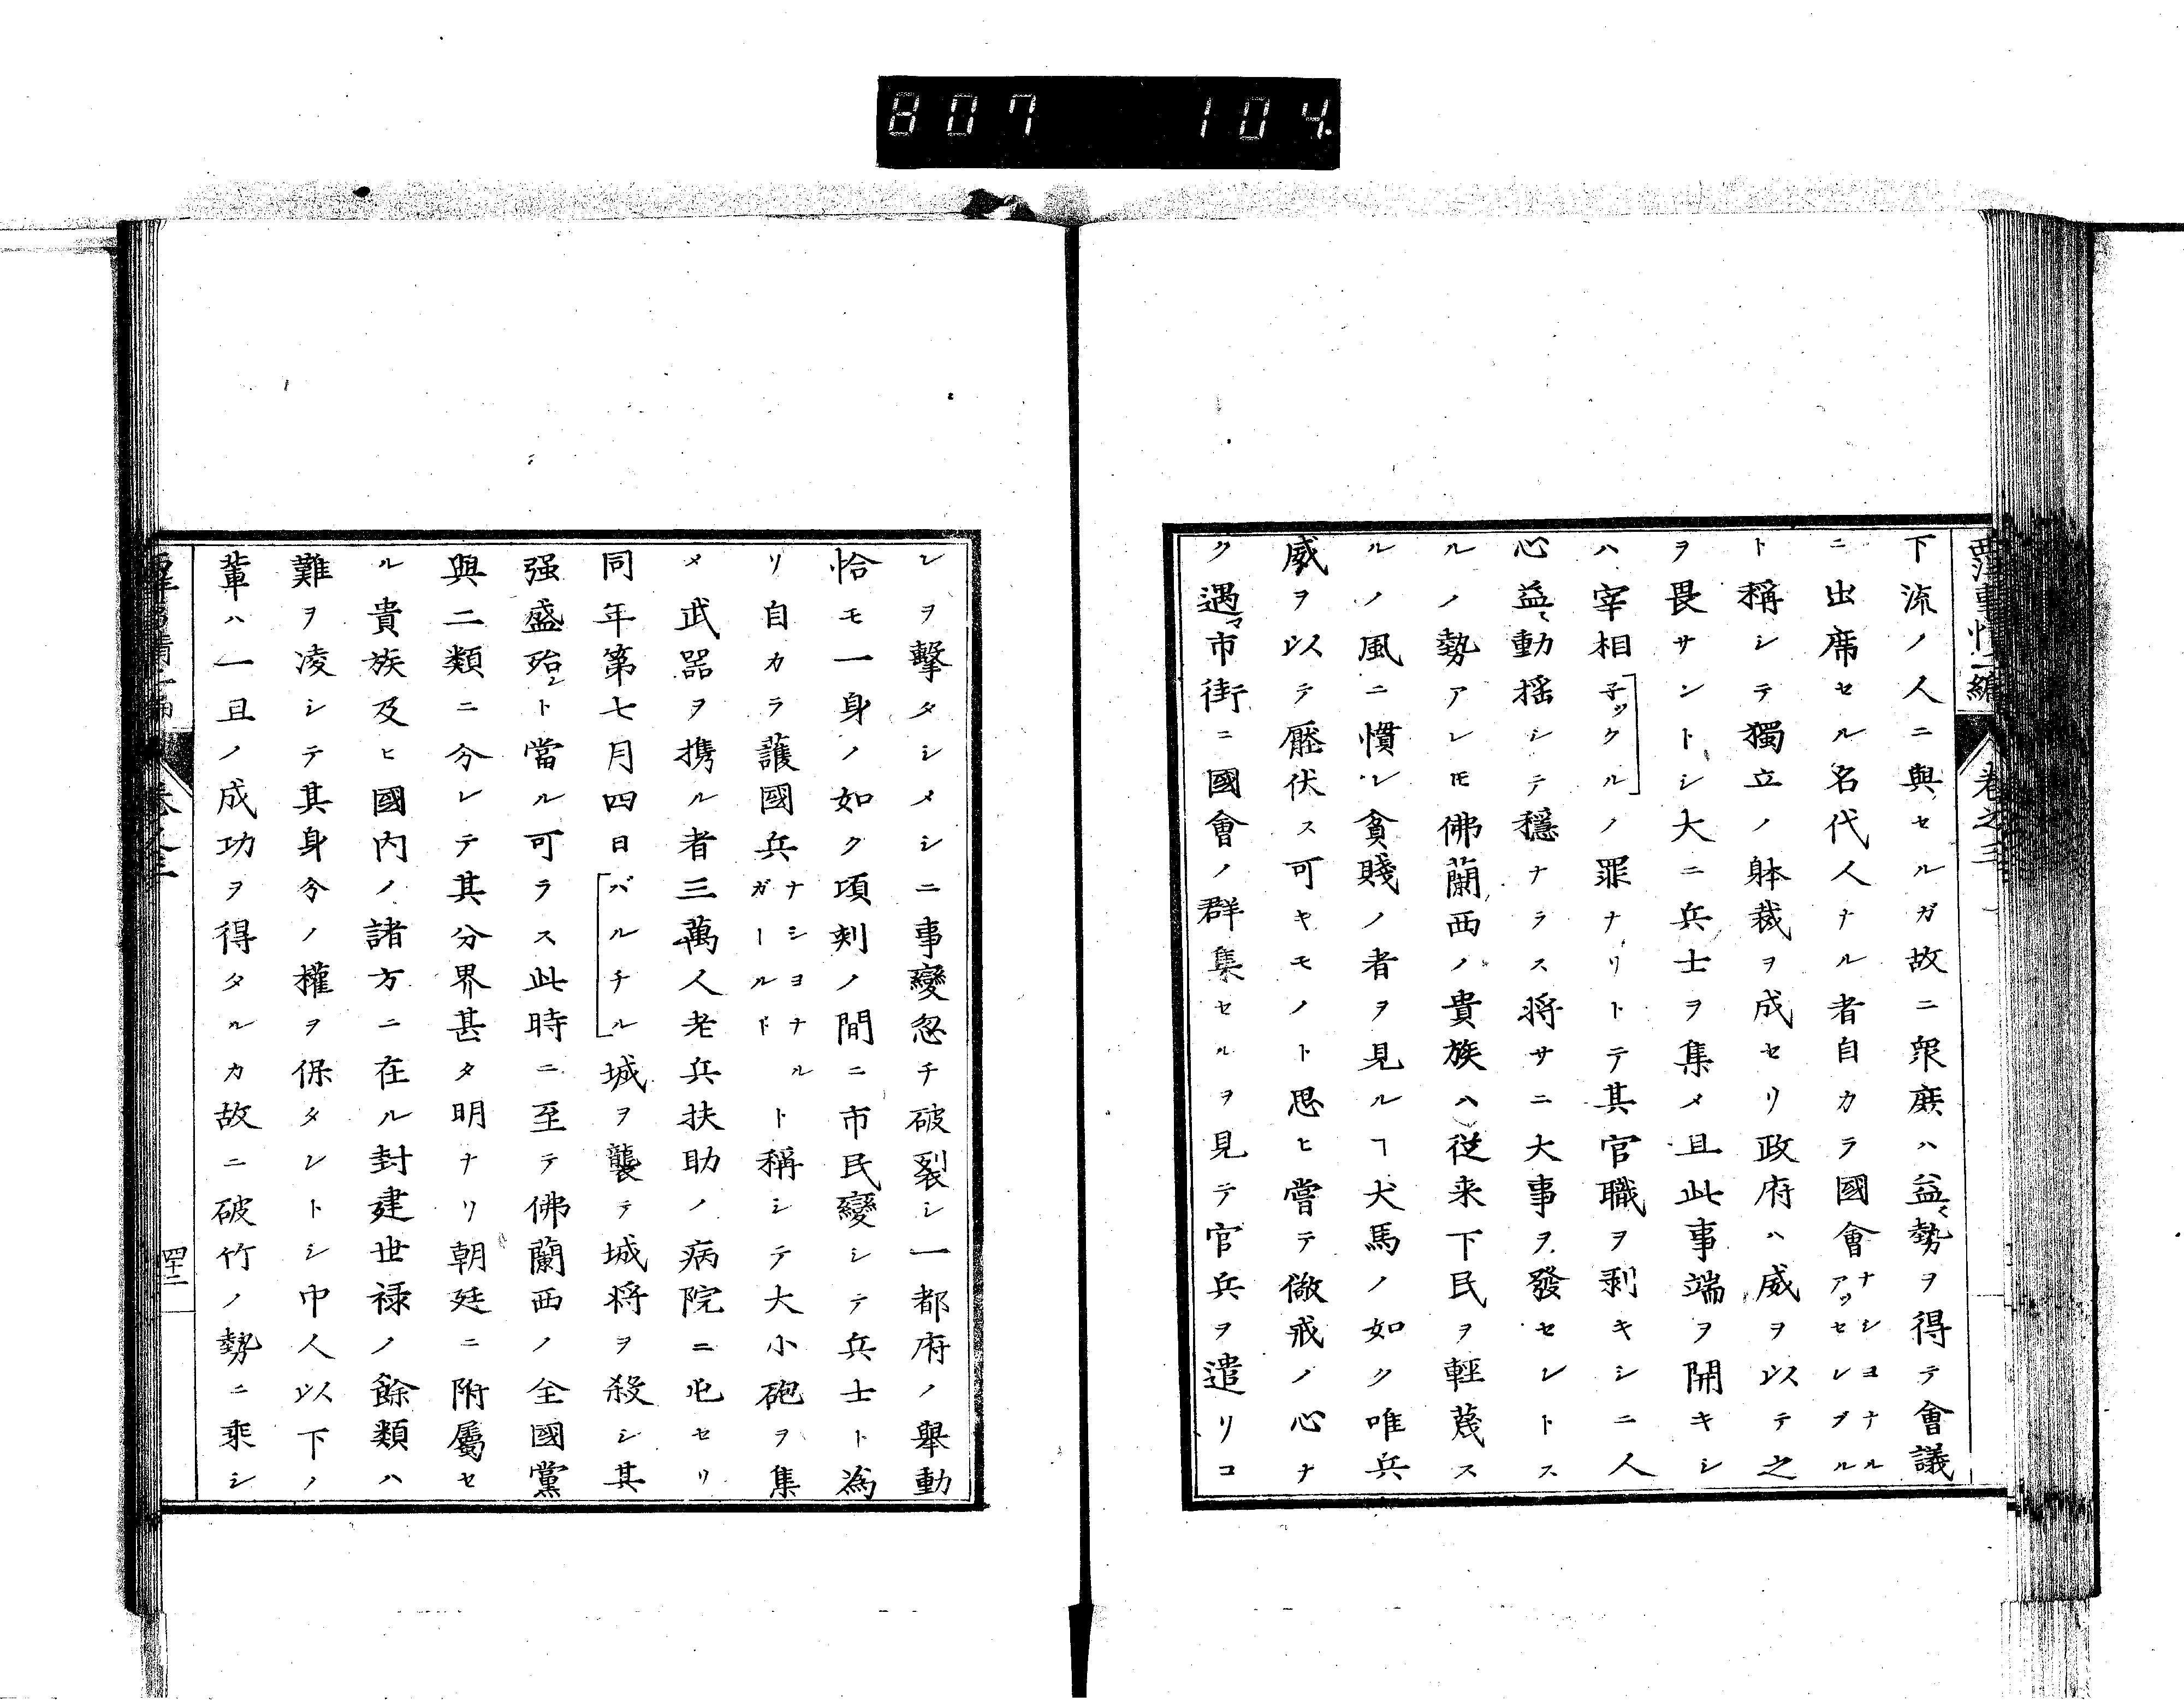 807 104.
西洋事情二編 巻之三
下流ノ人ニ與セルガ故ニ衆庶ハ益〻勢ヲ得テ會議
ニ出席セル名代人ナル者自カラ國會ナショナルアッセンブル
ト稱シテ獨立ノ躰裁ヲ成セリ政府ハ威ヲ以テ之
ヲ畏サントシ大ニ兵士ヲ集メ且此事端ヲ開キシ
ハ宰相子ックルノ罪ナリトテ其官職ヲ剥キシニ人
心益〻動揺シテ穏ナラス将サニ大事ヲ發セントス
ルノ勢アレ𪜈佛蘭西ノ貴族ハ従来下民ヲ輕蔑ス
ルノ風ニ慣レ貧賤ノ者ヲ見ルヿ犬馬ノ如ク唯兵
威ヲ以テ壓伏ス可キモノト思ヒ嘗テ儆戒ノ心ナ
ク遇マ市街ニ國會ノ群集セルヲ見テ官兵ヲ遣リコ
レヲ撃タシメシニ事變忽チ破裂シ一都府ノ舉動
恰モ一身ノ如ク項刻ノ間ニ市民變シテ兵士ト為
リ自カラ護國兵ナショナルガールドト稱シテ大小砲ヲ集
メ武器ヲ携ル者三萬人老兵扶助ノ病院ニ屯セリ
同年第七月四日バルチル城ヲ襲テ城将ヲ殺シ其
强盛殆ント當ル可ラス此時ニ至テ佛蘭西ノ全國黨
與二類ニ分レテ其分界甚タ明ナリ朝廷ニ附屬セ
ル貴族及ヒ國内ノ諸方ニ在ル封建世禄ノ餘類ハ
難ヲ凌シテ其身分ノ權ヲ保タントシ中人以下ノ
輩ハ一旦ノ成功ヲ得タルカ故ニ破竹ノ勢ニ乘シ
西洋事情二編 巻之三 四十二